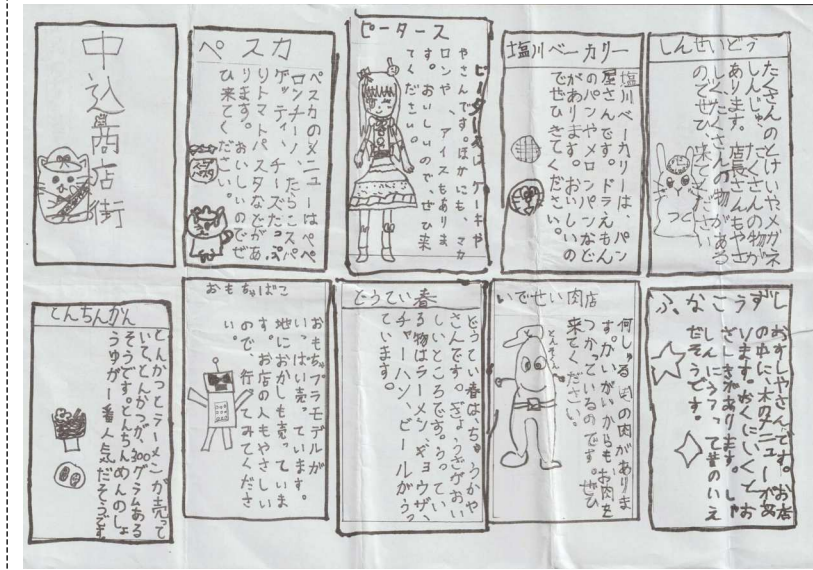 中込商店街
ペスカ
ペスカのメニューはペペ
ロンチーノ、たらこスパ
ゲッティ、チーズたっぷ
りトマトパスタなどがあ
ります。おいしいのでぜ
ひ来てください。
ピータース
ピータースは、ケーキや
やさんです。ほかにも、マカ
ロンや、アイスもありま
す。おいしいので、ぜひ来
てください。
塩川ベーカリー
塩川ベーカリーは、パン
屋さんです。ドラえもん
のパンやメロンパンなど
があります。おいしいの
でぜひきてください。
しんせいどう
たくさんのとけいやメガネ
しんじゅ、たくさんの物が
あります。店長さんもやさ
しく、たくさんの物がある
のでぜひ、来てください
とんちんかん
とんかつとラーメンが売って
いて、とんかつが、300グラムある
そうです。とんちんめんのしょ
うゆが一番人気だそうです
おもちゃばこ
おもちゃプラモデルが
い、っぱい売っています。
地におかしも売っていま
す。お店の人もやさしい
ので、行ってみてくださ
い。
とうてい春
とうてい春は、ちゅうかや
さんです。ぎょうざがおい
しいところです。うってい
る物はラーメン、ギョウザ、
チャーハン、ビールがうっ
ています。
いでせい肉店
何しゅるいの肉がありま
す。かいがいからも、お肉を
つかっているのです。ぜひ
来てください。
とんそくん
ふなこうずし
おすしやさんです。お店
の中に、木のメニューがあ
ります。おくにいくとお
ざしきがあります。しゃ
しんにうつって昔のいえ
だそうです。